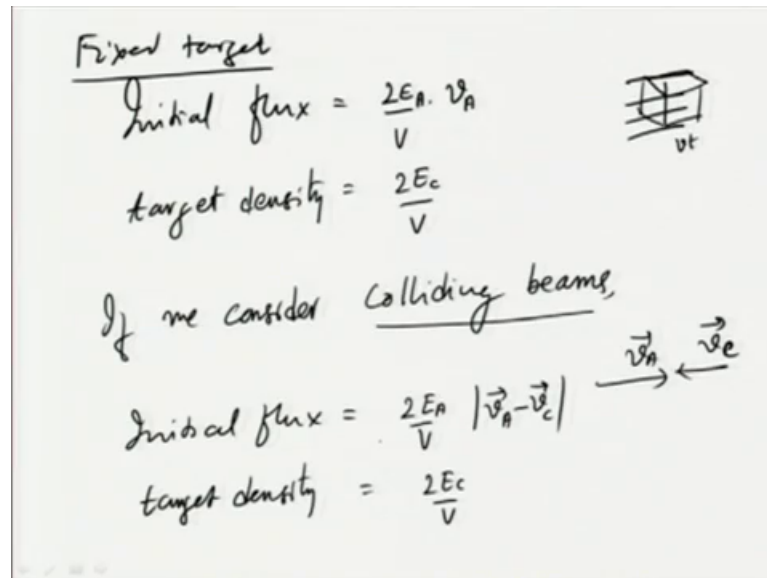 Fixed target
Initial flux = 2EA/V · vA
vt
target density = 2Ec/V
If we consider colliding beams,
v⃗A v⃗c
Initial flux = 2EA/V |v⃗A - v⃗c|
target density = 2Ec/V